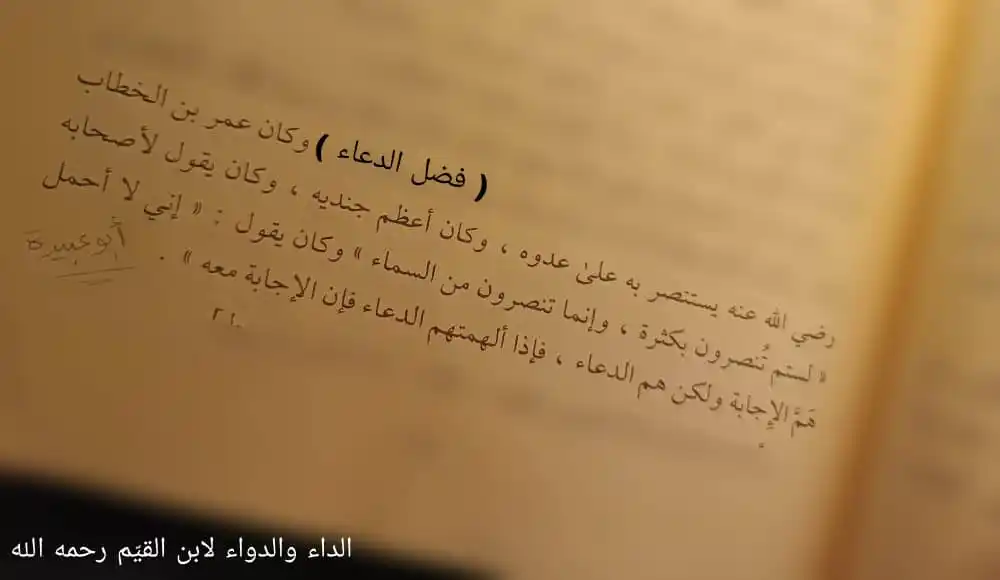 ( فضل الدعاء ) وكان عمر بن الخطاب
رضي الله عنه يستنصر به على عدوه ، وكان أعظم جنديه ، وكان يقول لأصحابه
« لستم تُنصرون بكثرة ، وإنما تنصرون من السماء » وكان يقول : « إني لا أحمل
هَمَّ الإِجابة ولكن هم الدعاء ، فإذا ألهمتهم الدعاء فإن الإجابة معه » .
٢١
الداء والدواء لابن القيّم رحمه الله